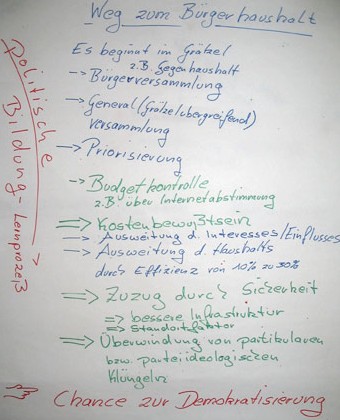 Weg zum Bürgerhaushalt
Es beginnt im Grätzel
z.B. Gegenhaushalt
-> Bürgerversammlung
-> General (Grätzelübergreifend)
versammlung
-> Priorisierung
-> Budgetkontrolle
z.B über Internetabstimmung
=> Kostenbewußtsein
=> Ausweitung d. Interesses/Einflusses
=> Ausweitung d. Haushalts
durch Effizienz von 10% zu 30%
=> Zuzug durch Sicherheit
=> bessere Infrastruktur
=> Standortfaktor
=> Überwindung von partikularen
bzw. parteiideologischen
Klüngeln
Chance zur Demokratisierung
Politische
Bildung - Lernprozeß